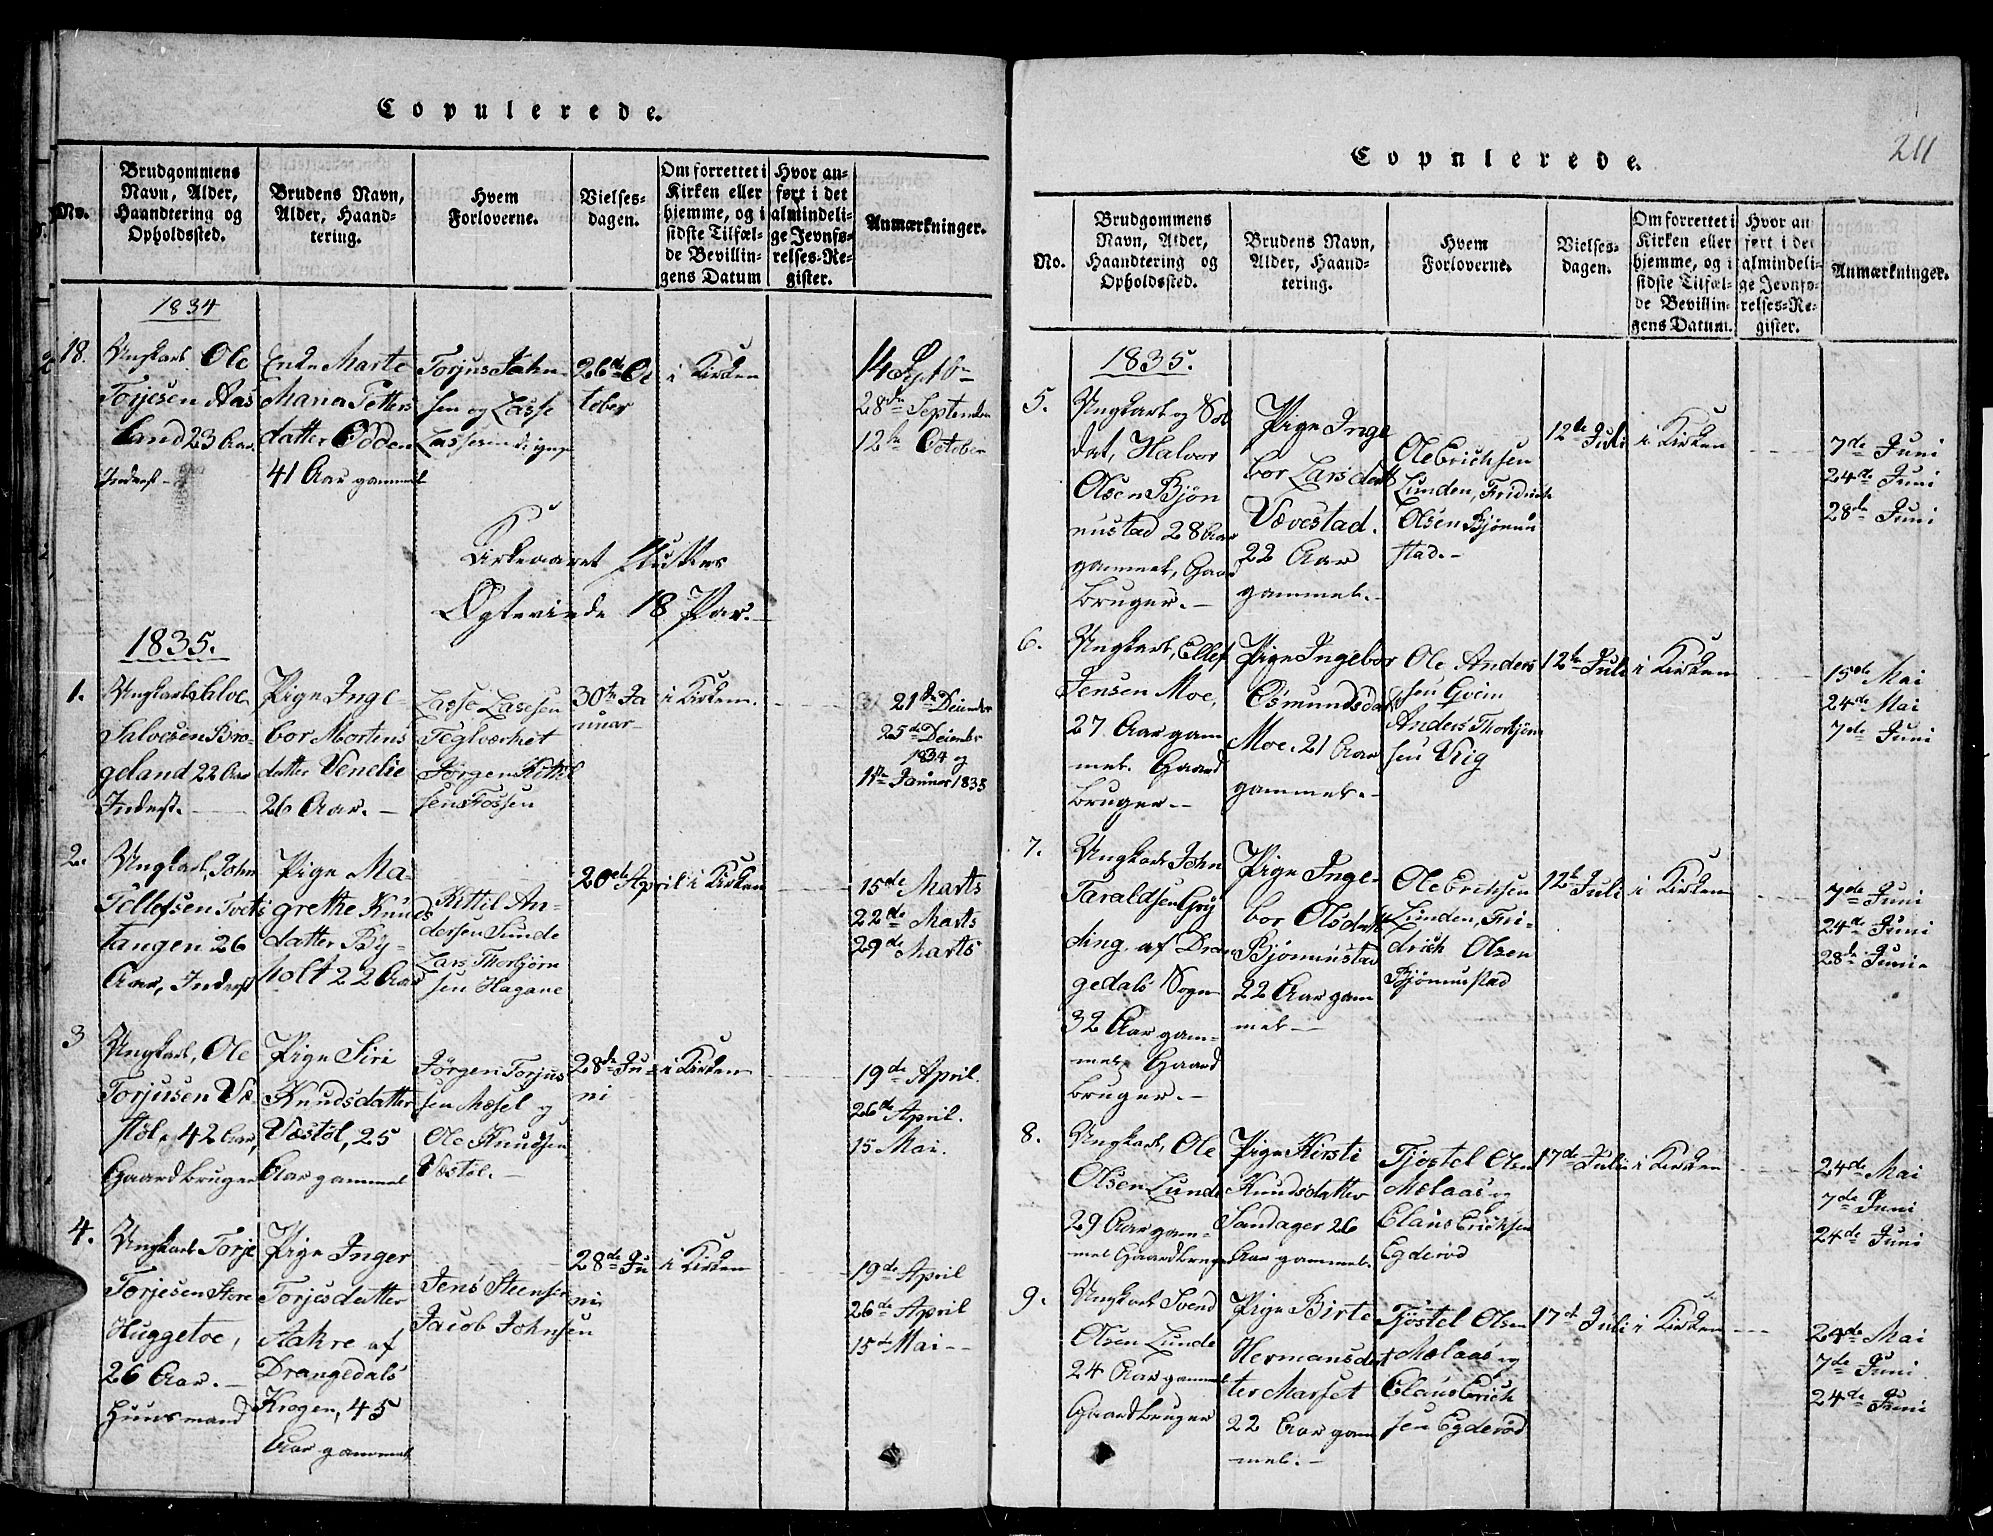 Copulerede.
No.
Brudgommens
Navn, Alder,
Haandtering og
Opholdssted.
Brudens Navn,
Alder, Haand-
tering.
Hvem
Forloverne.
Vielses-
dagen.
Om forrettet i
Kirken eller
hjemme, og i
sidste Tilfæl-
de Bevillin-
gens Datum
Hvor an-
ført i det
almindeli-
ge Jevnfø-
relses-Re-
gister.
Anmærkninger.
1834
18.
Ungkarl Ole
Torjesen Aas
land 23 Aar
Inderst -
Enke Marte
Maria Petters
datter Odden
41 Aar gammel
Torjus John-
sen og Lasse
Lassesen
26de Oc
tober
i Kirken
14 Septbr
28de September
12te October
Kirkeaaret sluttes
Ægteviede 18 Par.-
1835.
1.
Salvesen Bro-
geland 22 Aar
Inderst.
Pige Inge-
bor Mortens
datter Venelie
26 Aar.-
Lasse Lassesen
Teglværket
Jørgen Kittil
sen Fossen
30te Ja
nuar
i Kirken.
21de December
25de December
1834 og
11te Januar 1835
2.
Ungkarl, John
Tellefsen Tveit
tangen 26
Aar, Inderst
Pige Ma-
grethe Knuds
datter By-
holt 22 Aar
Kittil An-
dersen Sunde
Lars Thorbjørn
sen Hagane
20de April
i Kirken
15de Marts
22de Marts
29de Marts
3
Ungkarl, Ole
Torjusen Væ-
støl, 42 Aar,
Gaardbruger
Pige Siri
Knudsdatter
Væstøl, 25
Aar gammel
Jørgen Torjus
sen Mæsel og
Ole Knudsen
Væstøl.-
28de Ju-
ni
i Kirken
19de April.
26de April.
15 Mai.
4.
Ungkarl Torje
Torjesen Store
Huggetoe,
26 Aar.-
Huusmand
Pige Inger
Torjesdatter
Aakre af
Drangedals
Krogen, 45
Aar gammel
Jens Steensen
Jacob Johnsen
28de Ju
ni
i Kirken
19de April
26de April
15de Mai--
211
Copulerede.
No.
Brudgommens
Navn, Alder,
Haandtering og
Opholdssted.
Brudens Navn,
Alder, Haand-
tering.
Hvem
Forloverne.
Vielses-
dagen.
Om forrettet i
Kirken eller
hjemme, og i
sidste Tilfæl-
de Bevillin-
gens Datum.
Hvor an
ført i det
almindeli-
ge Jevnfø-
relses-Re-
gister.
Anmærkninger.
1835.
5.
Ungkarl og Sol
dat, Halvor
Olsen Bjön
nustad 28 Aar
gammel, Gaard
bruger.-
Pige Inge
bor Larsdatt
Vævestad.
22 Aar
gammel.-
Ole Erichsen
Lunden, Fridrich
Olsen Bjönnu
stad.-
12te Juli
i Kirken
7de Juni
24de Juni
28de Juni
6.
Ungkarl, Ellef
Jensen Moe,
27 Aar gam
mel. Gaard
bruger.-
Pige Ingebor
Osmundsdatt
Moe. 21 Aar
gammel.-
Ole Anders
sen
Anders Thorbjörn
sen
12te Juli
i Kirken
15de Mai
24de Mai
7de Juni
7.
Ungkarl John
Taraldsen
ding af Dran
gedals Sogn
32 Aar gam-
mel Gaard
bruger.-
Pige Inge-
bor Olsdatt
Bjönnustad
22 Aar gam
mel-
Ole Erichsen
Lunden, Fri-
drich Olsen
Bjönnustad
12te Juli
i Kirken
7de Juni
24de Juni
28de Juni-
8.
Ungkarl, Ole
Olsen Lunde
29 Aar gam-
mel Gaardbruger
Pige Kirsti
Knudsdatter
Sandager 26
Aar gammel.
Tjöstel Olsen
Molaas og
Claus Erichsen
Egderöd
17de Juli
i Kirken
24de Mai
7de Juni
24de Juni
9.
Ungkarl Svend
Olsen Lunde
24 Aar gammel
Gaardbruger
Pige Birte
Hermansdat
ter Marset
22 Aar gam
mel.-
Tjöstel Olsen
Molaas og
Claus Erich
sen Egderöd
17de Juli
i Kirken
24de Mai
7de Juni
24de Juni